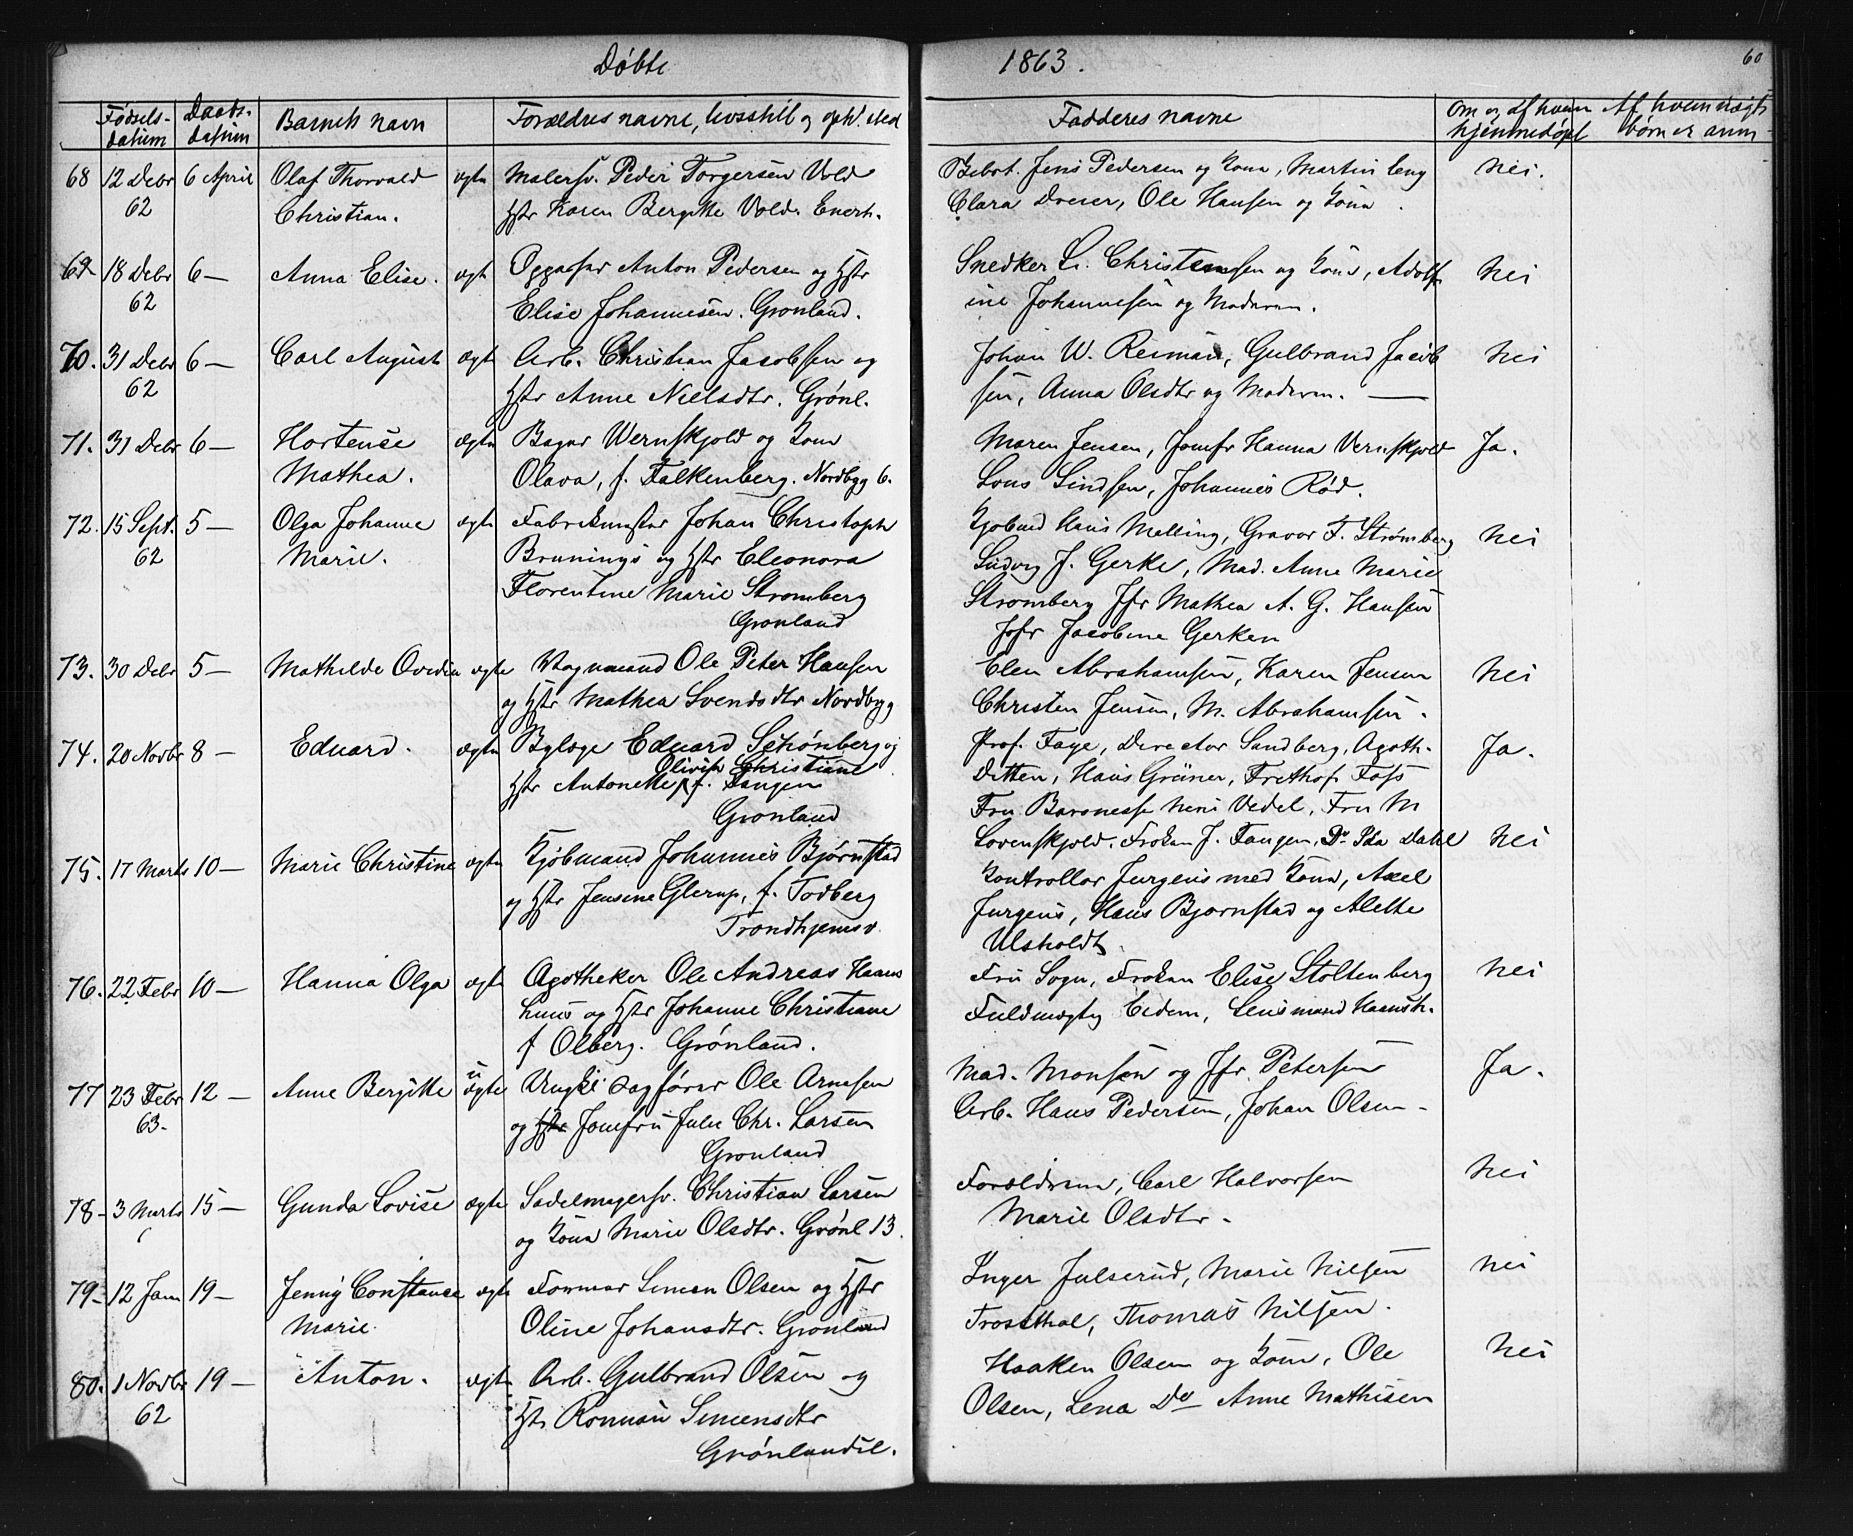 Døbte 1863. 60
Fødsels-datum Daabs-datum Barnets navn Forældres navne, livsstil og oph. sted Fadderes navne Om og af hvem hjemmedøpt Af hvem uægte børn er anm
68 12 Debr 6 April Olaf Thorvald ægte Malersv. Peder Torgersen Vold
62 Christian. Hstr Karen Bergitte Volds Enerh.
Jens Pedersen og Kone, Martin Eng nei.
Clara Dreier, Ole Hansen og Kone
69 18 Debr 6 — Anna Elise. ægte Oppasser Anton Pedersen og Hstr
62 Elise Johannesen. Gronland.
Snedker L. Christensen og Kone, Adolf nei
ine Johannesen og Moderen.
70. 31 Debr 6 — Carl August ægte Arb. Christian Jacobsen og
62 Hstr Anne Nielsdtr. Grønl.
Johan W. Reiman, Gulbrand Jacob nei
sen, Anna Olsdtr og Moderen. —
71. 31 Debr 6 — Hortense ægte Bager Wernskjold og Kone
Mathea. Olava, f. Falkenberg. Nordbyg 6.
Maren Jensen, Jomfr Hanna Vernskjold Ja.
Lons Lindsen, Johannes Rød.
72. 15 Sept. 5 — Olga Johanne ægte Fabrikmester Johan Christoph
62 Marie. Brunings og Hstr Eleonora
Florentine Marie Stromberg
Gronland
Kjobmd Hans Melling, Gravør F. Strømberg nei
Ludvig J. Gerke, Mad. Anne Marie
Stromberg Jfr Mathea A. G. Hansen
Jofr Jacobine Gerken
73. 30 Debr 5 — Mathilde Ovedia ægte Vognmand Ole Peter Hansen
og Hstr Mathea Svendsdtr Nordbyg
Elen Abrahamsen, Karen Jensen nei
Christen Jensen, M. Abrahamsen.
74. 20 Novbr 8 — Eduard. ægte Byloge Eduard Schønberg og
Olivia Christiane
Hstr Antonette f. Tangen
Gronland
Prof. Faye, Director Sandberg, Apoth. Ja.
Ditten, Hans Grüner, Frethof Foss
Fru Baronesse Vedel, Fru M
Lovenskjold. Frøken J. Tangen, Do Ida Dahl
75. 17 Marts 10 — Marie Christine ægte Kjøbmand Johannes Bjørnstad nei
og Hstr Jensine Glerup, f. Todberg
Trondhjemsv.
Kontrollør Jurgens med Kone, Axel
Jurgens, Hans Bjørnstad og Alette
Ulsholdt.
76. 22 Febr 10 — Hanna Olga ægte Apotheker Ole Andreas Haans
huus og Hstr Johanne Christiane
f Olberg. Grønland.
Fru Sogn, Frøken Elise Stoltenberg nei
Fuldmægtig Eidem, Lensmand Haansh.
77 23 Febr 12 — Anne Bergitte uægte Ungk. Sagfører Ole Arnesen
63. og Hstr Jomfru Julie Chr. Larsen
Gronland
Mad. Monsen og Jfr Petersen Ja.
Arb. Hans Pedersen, Johan Olsen.
78 3 Marts 15 — Gunda Lovise ægte Sadelmagersv. Christian Larsen
og Kone Marie Olsdtr. Grønl 13.
Forældrene, Carl Halvorsen nei
Marie Olsdtr.
79 12 Jan 19 — Jenny Constance ægte Former Simen Olsen og Hstr
Marie. Oline Johansdtr. Gronland
Inger Julserud, Marie Nilsen nei
Trosethal, Thomas Nilsen.
80. 1 Novbr 19 — Anton. ægte Arb. Gulbrand Olsen og
62 Hstr Simensdtr
Grønlandsl.
Haaken Olsen og Kone, Ole nei
Olsen, Lena Do Anne Mathisen